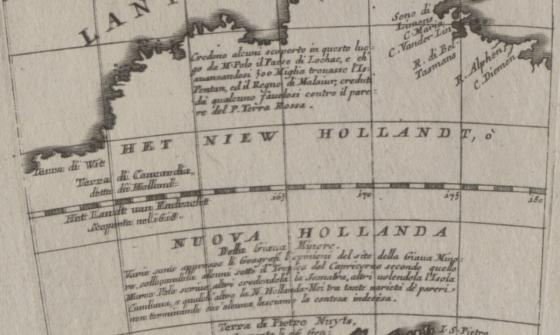 LAN
Seno di
Limons
C. Maria
C. Vander Lin
R. di Bel
Tasmans
R. Alphen
C. Diemen
Credono alcuni scoperto in questo luo-
go da M. Polo il Paese di Lochac, e ch
auanzandosi 500 Miglia trouasse l'Is.
Pentan, ed il Regno di Malaiur, creduti
da qualcuno fauolosi contro il pare-
re del P. Terra Rossa.
HET NIEW HOLLANDT, ò
Terra di Wit
Terra di Concordia,
detta di Holland.
165 170 175 180
Het Landt van Eendracht
Scoperta nel 1618.
NUOVA HOLLANDA
Della Giaua Minore.
Varie sono appresso li Geografi l'openioni del sito della Giaua Mino-
re, collocandola alcuni sotto il Tropico del Capricorno secondo quello
Marco Polo scriue, altri credendola la Sumatra, altri uolendola l'Isola
Cambaua, e quidi altri la N. Hollanda. Noi tra tante varietà de pareri
non terminando cosa alcuna lasciamo la contesa indecisa.
Terra di Pietro Nuyts,
I. S. Pietro